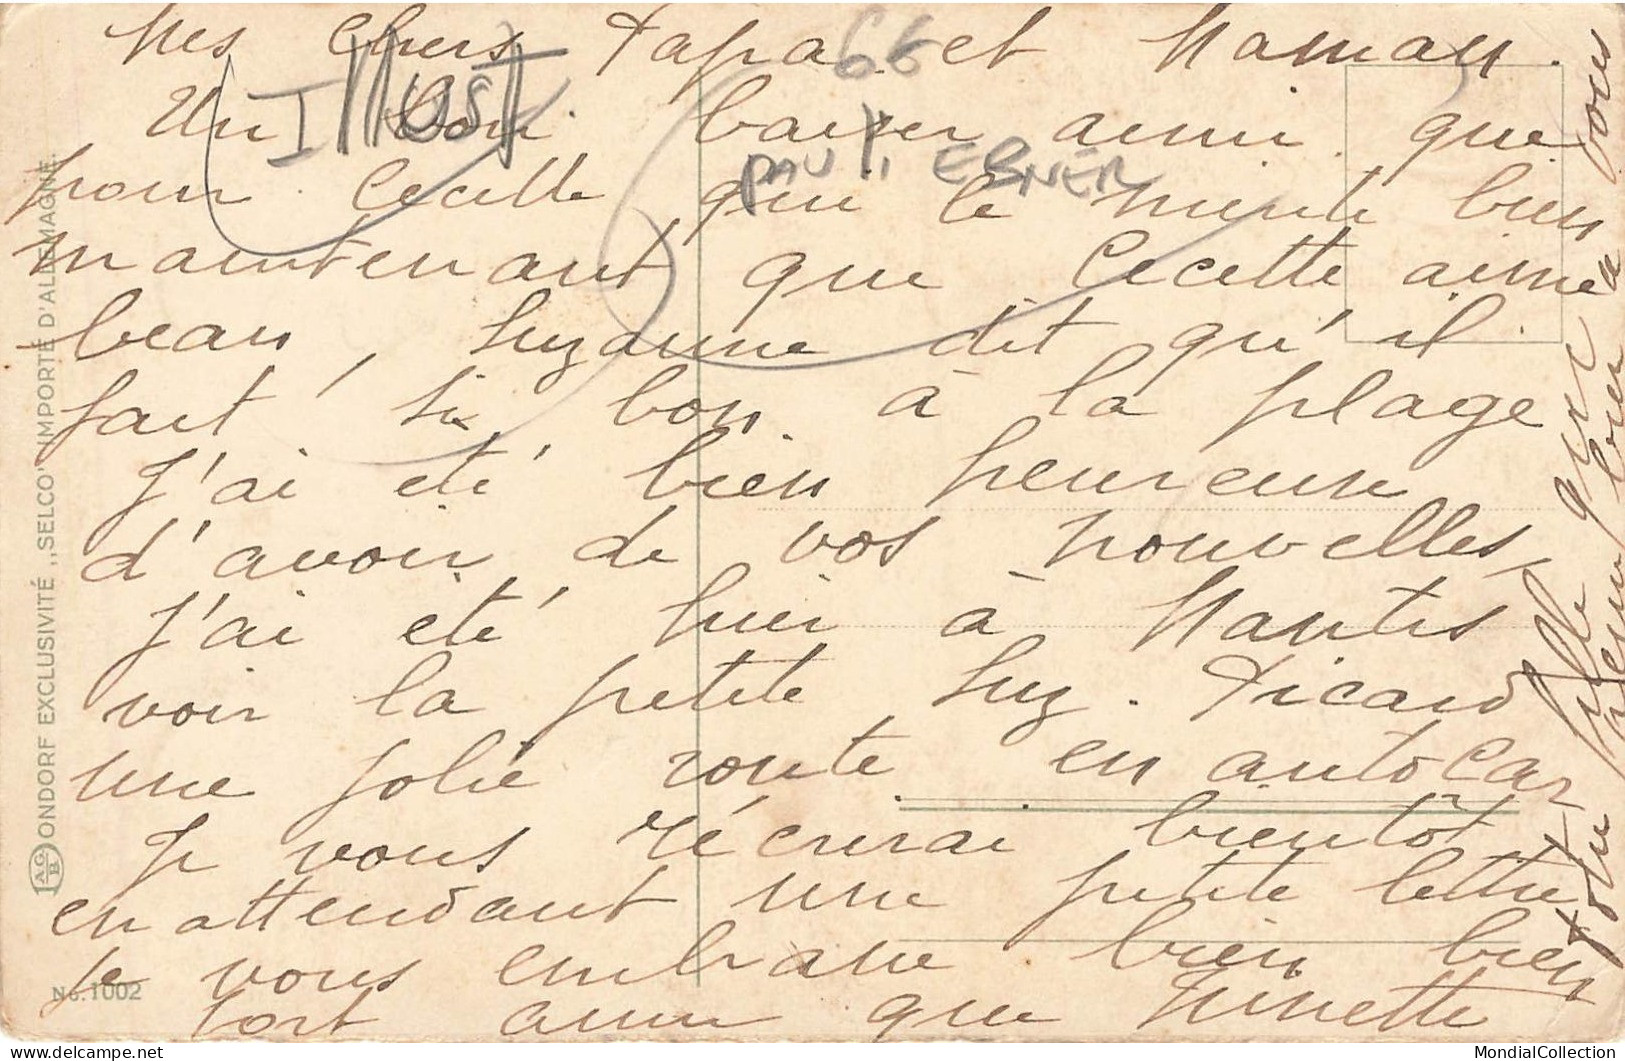 Mes chers Papa et Maman.
Un bon baiser ainsi que
pour Cecette qui le mérite bien
maintenant que Cecette aime
beau, Suzanne dit qu'il
fait si bon à la plage
J'ai été bien heureuse
d'avoir de vos nouvelles,
J'ai été hier à Nantes
voir la petite Suz. Picard
une jolie route en autocar
Je vous récrirai bientôt
en attendant une petite lettre
je vous embrasse bien bien
fort ainsi que Ninette
Votre fille qui vous
bien
ILLUST
66
PAULI EBNER
AGB
ONDORF EXCLUSIVITÉ „SELCO" IMPORTÉ D'ALLEMAGNE.
No. 1002
MondialCollection